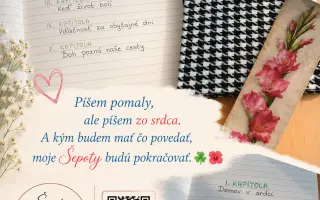 III. KAPITOLA
Keď život bolí
IV. KAPITOLA
Vďačnosť za obyčajné dni
V. KAPITOLA
Boh pozná naše cesty
Píšem pomaly,
ale píšem zo srdca.
A kým budem mať čo povedať,
moje Šepoty budú pokračovať.
I. KAPITOLA
Domov v srdci